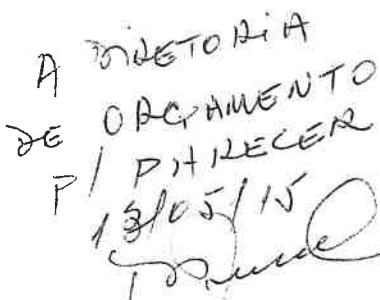 A DIRETORIA
DE ORÇAMENTO
P/ PARECER
13/05/15